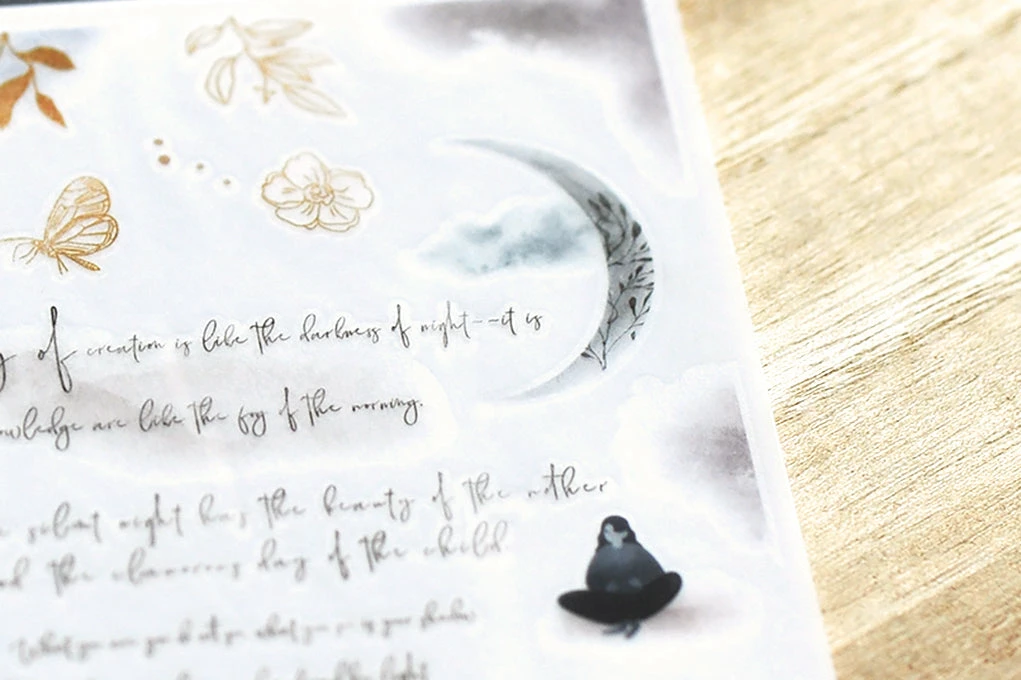 of creation is like the darkness of night--it is
owledge are like the fog of the morning.
silent night has the beauty of the mother
the clamorous day of the child
What you are you what you is your shadow